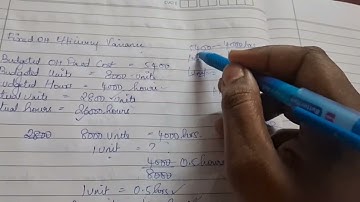 Fixed OH Efficiency Variance
Budgeted OH Fixed Cost = 5400
Budgeted Units = 8000 units
Budgeted Hours = 4000 hours
Actual Units = 2800 units
Actual hours = 26000 hours
2800 8000 units = 4000 hrs.
1 unit = ?
4000 0.5 hours
8000
1 unit = 0.5 hrs